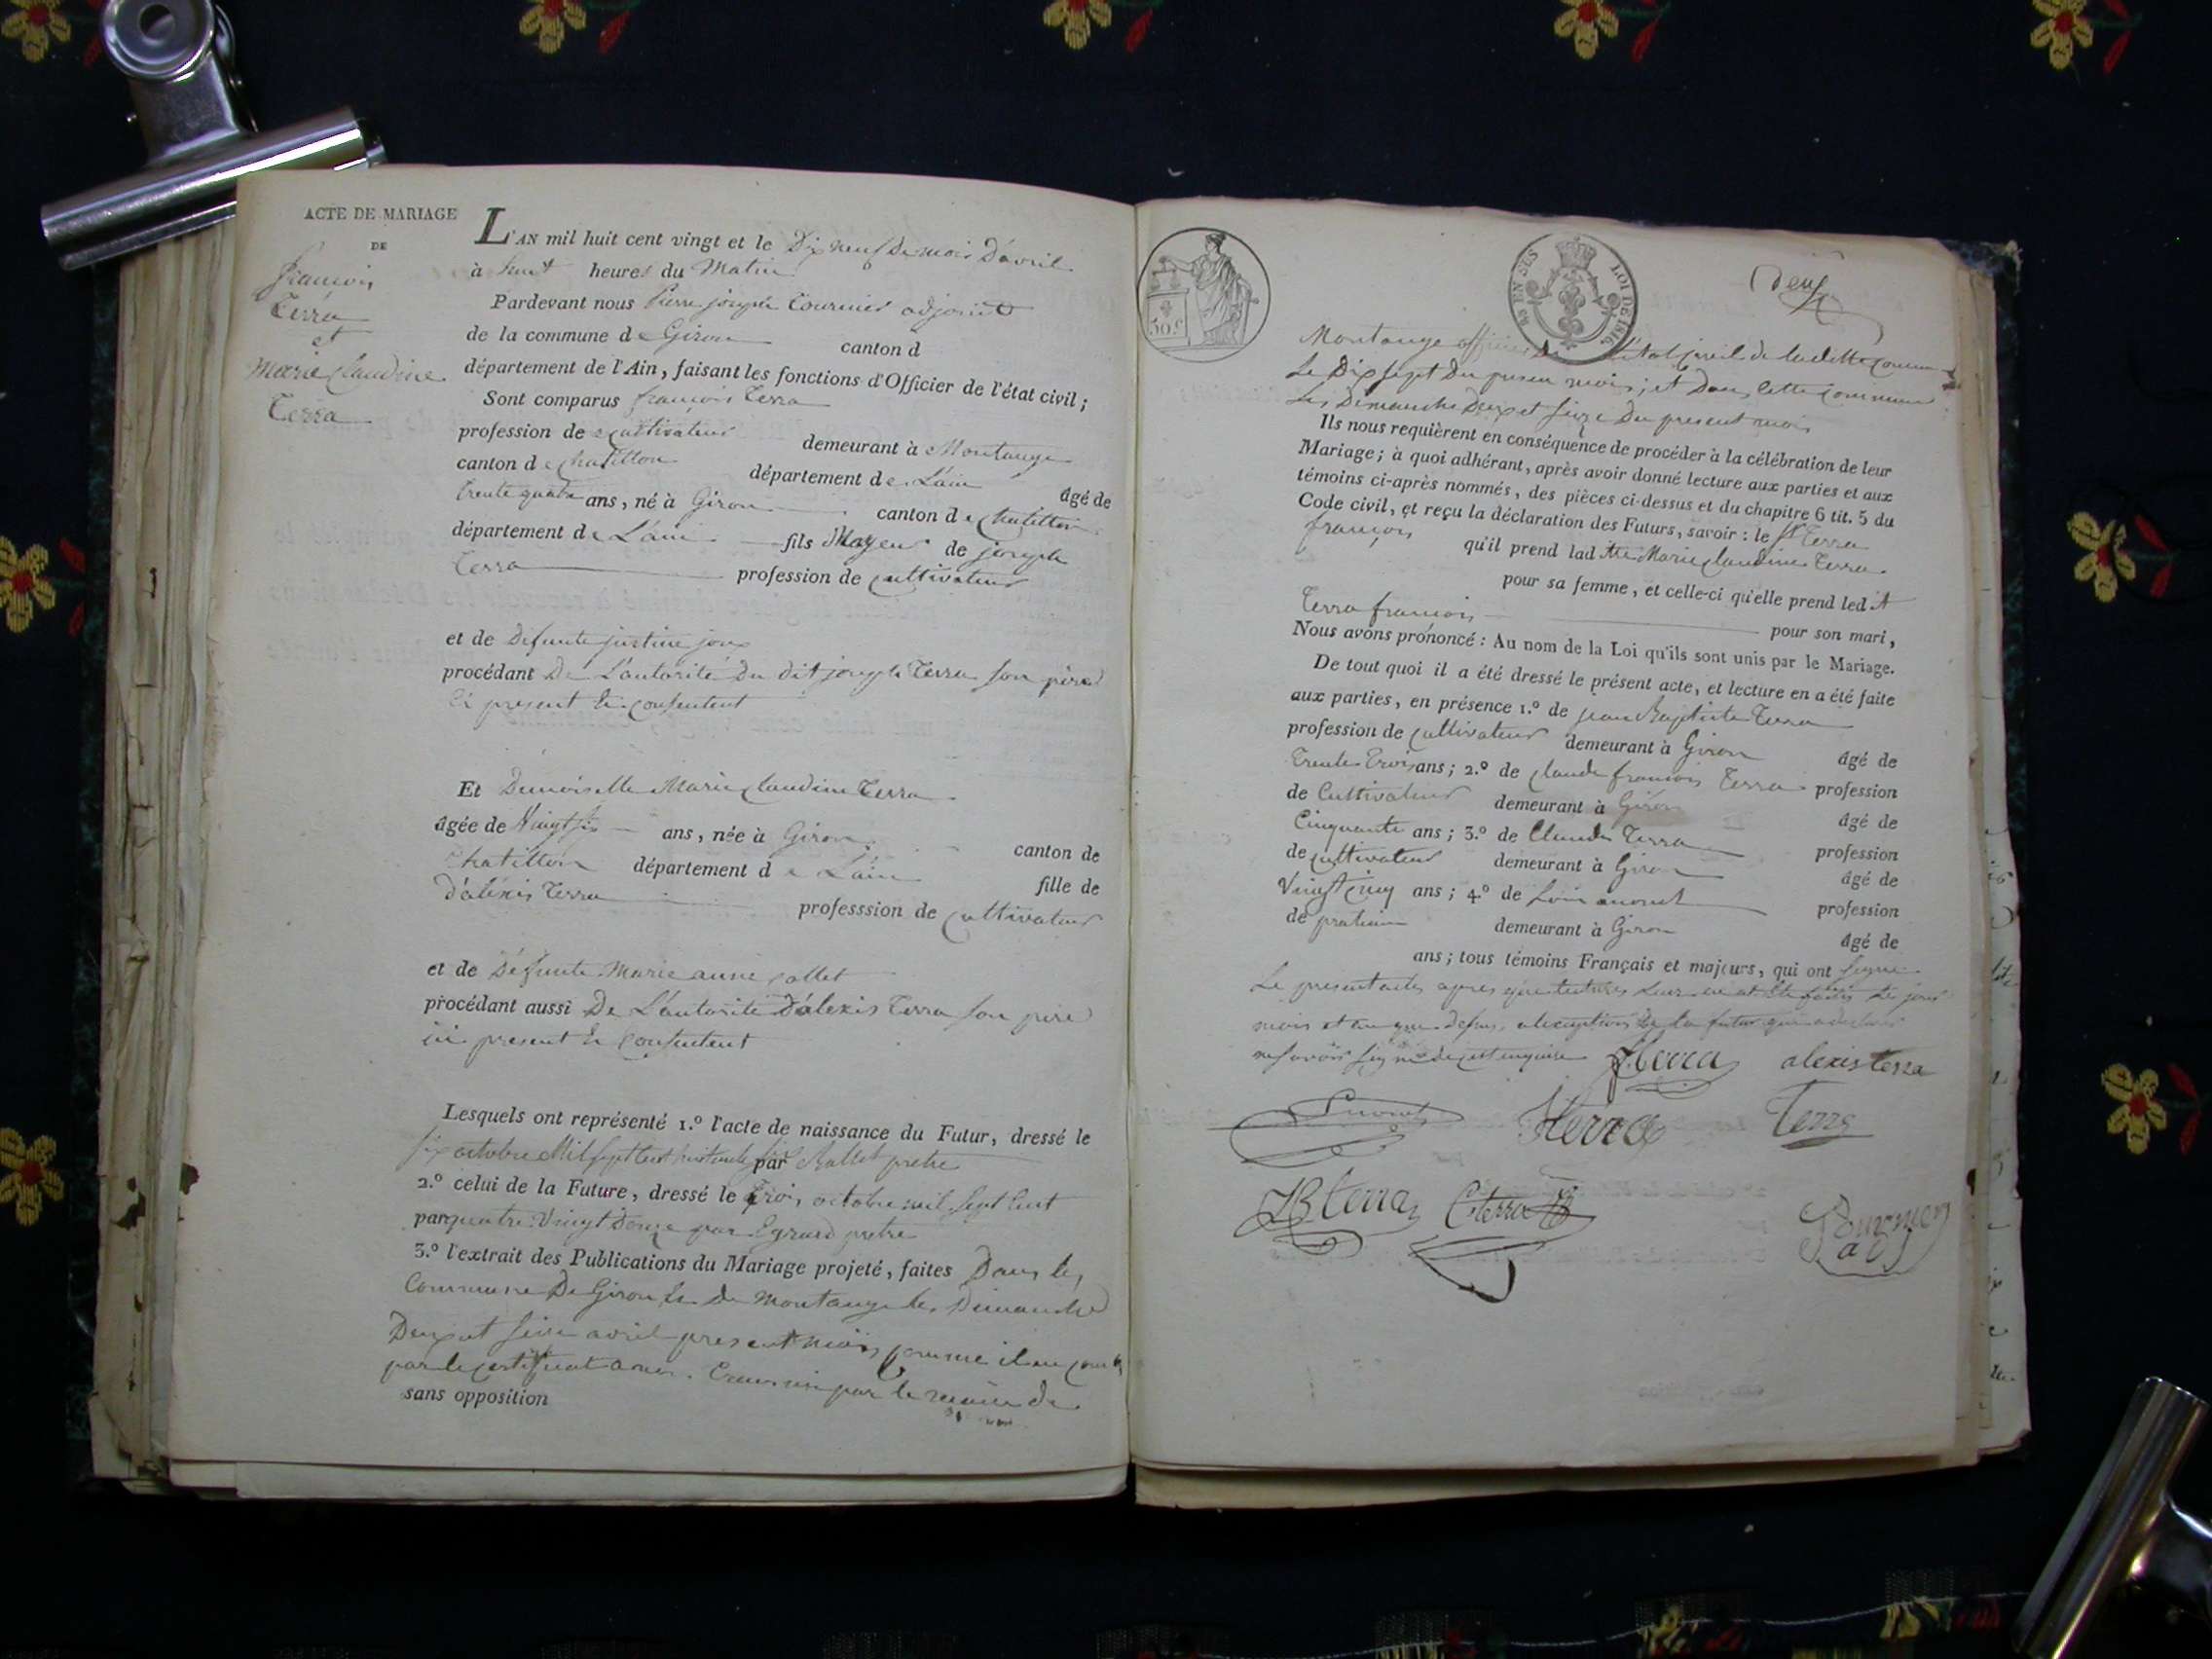 ACTE DE MARIAGE
DE
françois
Terra
et
Marie Claudine
Terra
L'AN mil huit cent vingt et le Dix neuf du mois D'avril
à huit heures du Matin
Pardevant nous Pierre joseph Tournier adjoint
de la commune de Giron canton d
département de l'Ain, faisant les fonctions d'Officier de l'état civil;
Sont comparus françois Terra
profession de cultivateur demeurant à Montange
canton de chatillon département de L'ain âgé de
trente quatre ans, né à Giron canton de chatillon
département de L'ain fils Majeur de joseph
Terra profession de cultivateur
et de Defunte justine joux
procédant De L'autorité Du dit joseph Terra son père
ici present & consentent
Et Demoiselle Marie Claudine Terra
âgée de Vingt six ans, née à Giron canton de
Chatillon département de L'ain fille de
D'alexis Terra professsion de cultivateur
et de Défunte Marie anne
procédant aussi De L'autorité D'alexis Terra son père
ici present & consentent
Lesquels ont représenté 1.º l'acte de naissance du Futur, dressé le
six octobre Mil sept cent huitante six par Ballet pretre
2.º celui de la Future, dressé le Trois octobre mil sept cent
par quatre Vingt Douze par pretre
3.º l'extrait des Publications du Mariage projeté, faites Dans les
Commune De Giron & De Montange les Dimanche
Deux et seize avril present mois comme il en
par le certificat a nous par le maire de
sans opposition
50 c
LOI DE 1816
Deux
Montange officier De L'état civil de laditte commune
Le Dix sept Du present mois; et Dans cette commune
Les Dimanche Deux et seize Du present mois
Ils nous requièrent en conséquence de procéder à la célébration de leur
Mariage; à quoi adhérant, après avoir donné lecture aux parties et aux
témoins ci-après nommés, des pièces ci-dessus et du chapitre 6 tit. 5 du
Code civil, et reçu la déclaration des Futurs, savoir: le st Terra
françois qu'il prend ladtte Marie Claudine Terra
pour sa femme, et celle-ci qu'elle prend ledit
Terra francois pour son mari,
Nous avons prononcé: Au nom de la Loi qu'ils sont unis par le Mariage.
De tout quoi il a été dressé le présent acte, et lecture en a été faite
aux parties, en présence 1.º de jean Baptiste Terra
profession de cultivateur demeurant à Giron âgé de
Trente Trois ans; 2.º de claude francois Terra profession
de Cultivateur demeurant à Giron âgé de
Cinquante ans; 3.º de Claude Terra profession
de cultivateur demeurant à Giron âgé de
Vingt cinq ans; 4.º de profession
de praticien demeurant à Giron âgé de
ans; tous témoins Français et majeurs, qui ont signé
Le present acte apres que lecture Leur en at été faitte Les jour
mois et an que dessus, a lexception De la futur qui a declaré
ne savoir signé de cest enquise fterra alexis terra
Terra
JB terra Cterra
Tournier
adj